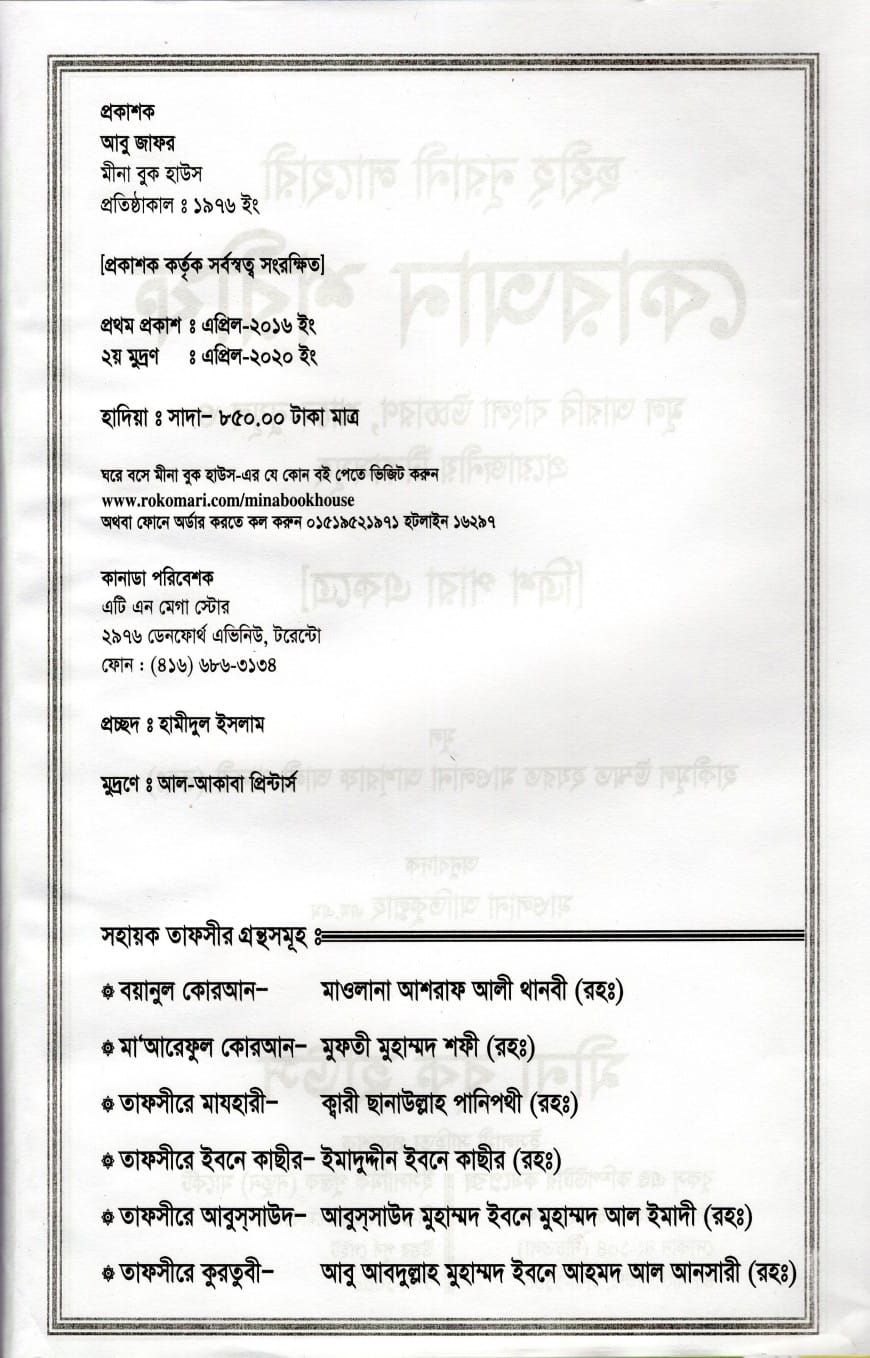 প্রকাশক
আবু জাফর
মীনা বুক হাউস
প্রতিষ্ঠাকাল ঃ ১৯৭৬ ইং
[প্রকাশক কর্তৃক সর্বস্বত্ব সংরক্ষিত]
প্রথম প্রকাশ ঃ এপ্রিল-২০১৬ ইং
২য় মুদ্রণ ঃ এপ্রিল-২০২০ ইং
হাদিয়া ঃ সাদা– ৮৫০.০০ টাকা মাত্র
ঘরে বসে মীনা বুক হাউস-এর যে কোন বই পেতে ভিজিট করুন
www.rokomari.com/minabookhouse
অথবা ফোনে অর্ডার করতে কল করুন ০১৫১৯৫২১৯৭১ হটলাইন ১৬২৯৭
কানাডা পরিবেশক
এটি এন মেগা স্টোর
২৯৭৬ ডেনফোর্থ এভিনিউ, টরেন্টো
ফোন : (৪১৬) ৬৮৬-৩১৩৪
প্রচ্ছদ ঃ হামীদুল ইসলাম
মুদ্রণে ঃ আল-আকাবা প্রিন্টার্স
সহায়ক তাফসীর গ্রন্থসমূহ ঃ
বয়ানুল কোরআন– মাওলানা আশরাফ আলী থানবী (রহঃ)
মা‘আরেফুল কোরআন– মুফতী মুহাম্মদ শফী (রহঃ)
তাফসীরে মাযহারী– ক্বারী ছানাউল্লাহ পানিপথী (রহঃ)
তাফসীরে ইবনে কাছীর– ইমাদুদ্দীন ইবনে কাছীর (রহঃ)
তাফসীরে আবুস্‌সাউদ– আবুস্‌সাউদ মুহাম্মদ ইবনে মুহাম্মদ আল ইমাদী (রহঃ)
তাফসীরে কুরতুবী– আবু আবদুল্লাহ মুহাম্মদ ইবনে আহমদ আল আনসারী (রহঃ)